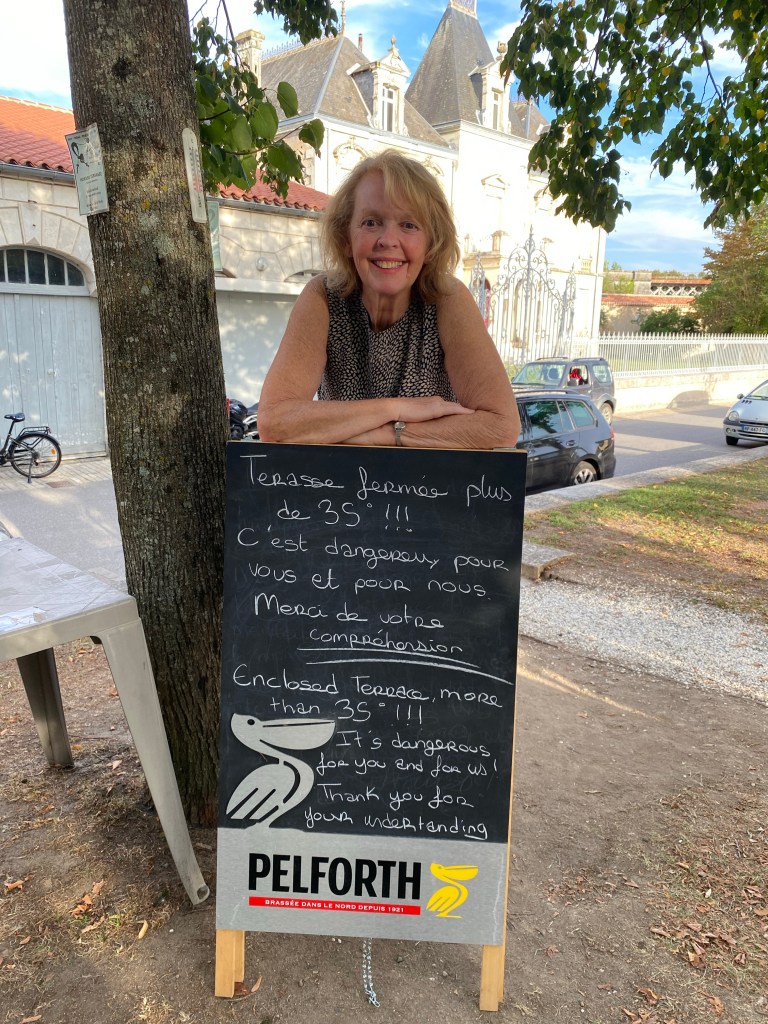 Terasse fermée plus
de 35° !!!
C'est dangereux pour
vous et pour nous.
Merci de votre
compréhension
Enclosed Terrace, more
than 35° !!!
It's dangerous
for you and for us!
Thank you for
your understanding
PELFORTH
BRASSÉE DANS LE NORD DEPUIS 1921